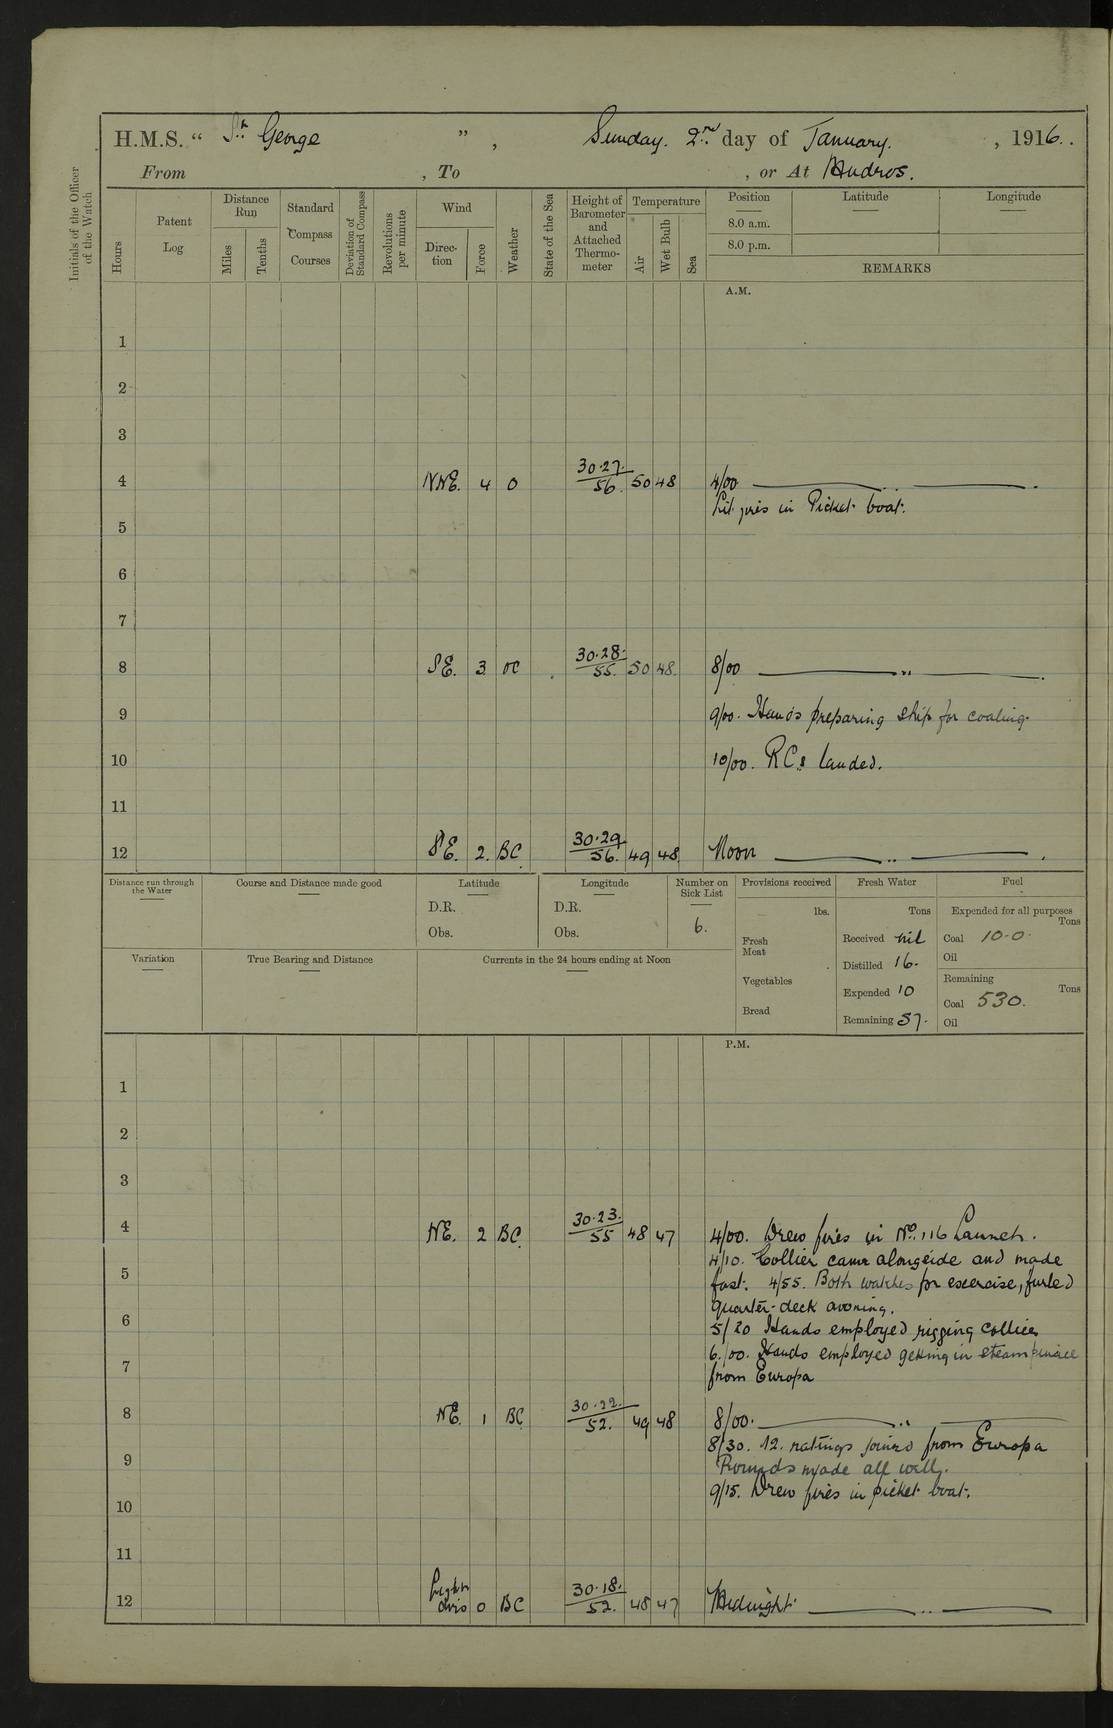 H.M.S. “ St George ” , Sunday. 2nd day of January. , 1916.
From , To , or At Mudros.
Initials of the Officer of the Watch
Hours
Patent Log
Distance Run
Miles
Tenths
Standard Compass Courses
Deviation of Standard Compass
Revolutions per minute
Wind
Direction
Force
Weather
State of the Sea
Height of Barometer and Attached Thermometer
Temperature
Air
Wet Bulb
Sea
Position Latitude Longitude
8.0 a.m.
8.0 p.m.
REMARKS
A.M.
1
2
3
4 NNE. 4 O 30.27. / 56. 50 48 4/00 ——— „ ———.
Lit fires in Picket boat.
5
6
7
8 SE. 3 OC 30.28. / 55. 50 48. 8/00 ——— „ ———.
9 9/00. Hands preparing ship for coaling.
10 10/00. RCs landed.
11
12 SE. 2. BC. 30.29 / 56. 49 48. Noon ——— „ ———.
Distance run through the Water
Course and Distance made good
Latitude
D.R.
Obs.
Longitude
D.R.
Obs.
Number on Sick List
6.
Provisions received
lbs.
Fresh Meat
Vegetables
Bread
Fresh Water
Tons
Received nil
Distilled 16.
Expended 10
Remaining 57.
Fuel
Expended for all purposes
Tons
Coal 10.0.
Oil
Remaining
Tons
Coal 530.
Oil
Variation
True Bearing and Distance
Currents in the 24 hours ending at Noon
P.M.
1
2
3
4 NE. 2 BC. 30.23. / 55 48 47 4/00. Drew fires in No. 116 Launch.
4/10. Collier came alongside and made
5 fast. 4/55. Both watches for exercise, furled
quarter-deck awning.
6 5/20 Hands employed rigging collier
6./00. Hands employed getting in steam pinnace
7 from Europa
8 NE. 1 BC. 30.22. / 52. 49 48 8/00. ——— „ ———
8/30. 12. ratings joined from Europa
9 Rounds made all well.
9/15. Drew fires in picket boat.
10
11
12 Light airs 0 BC 30.18. / 52. 48 47 Midnight ——— „ ———